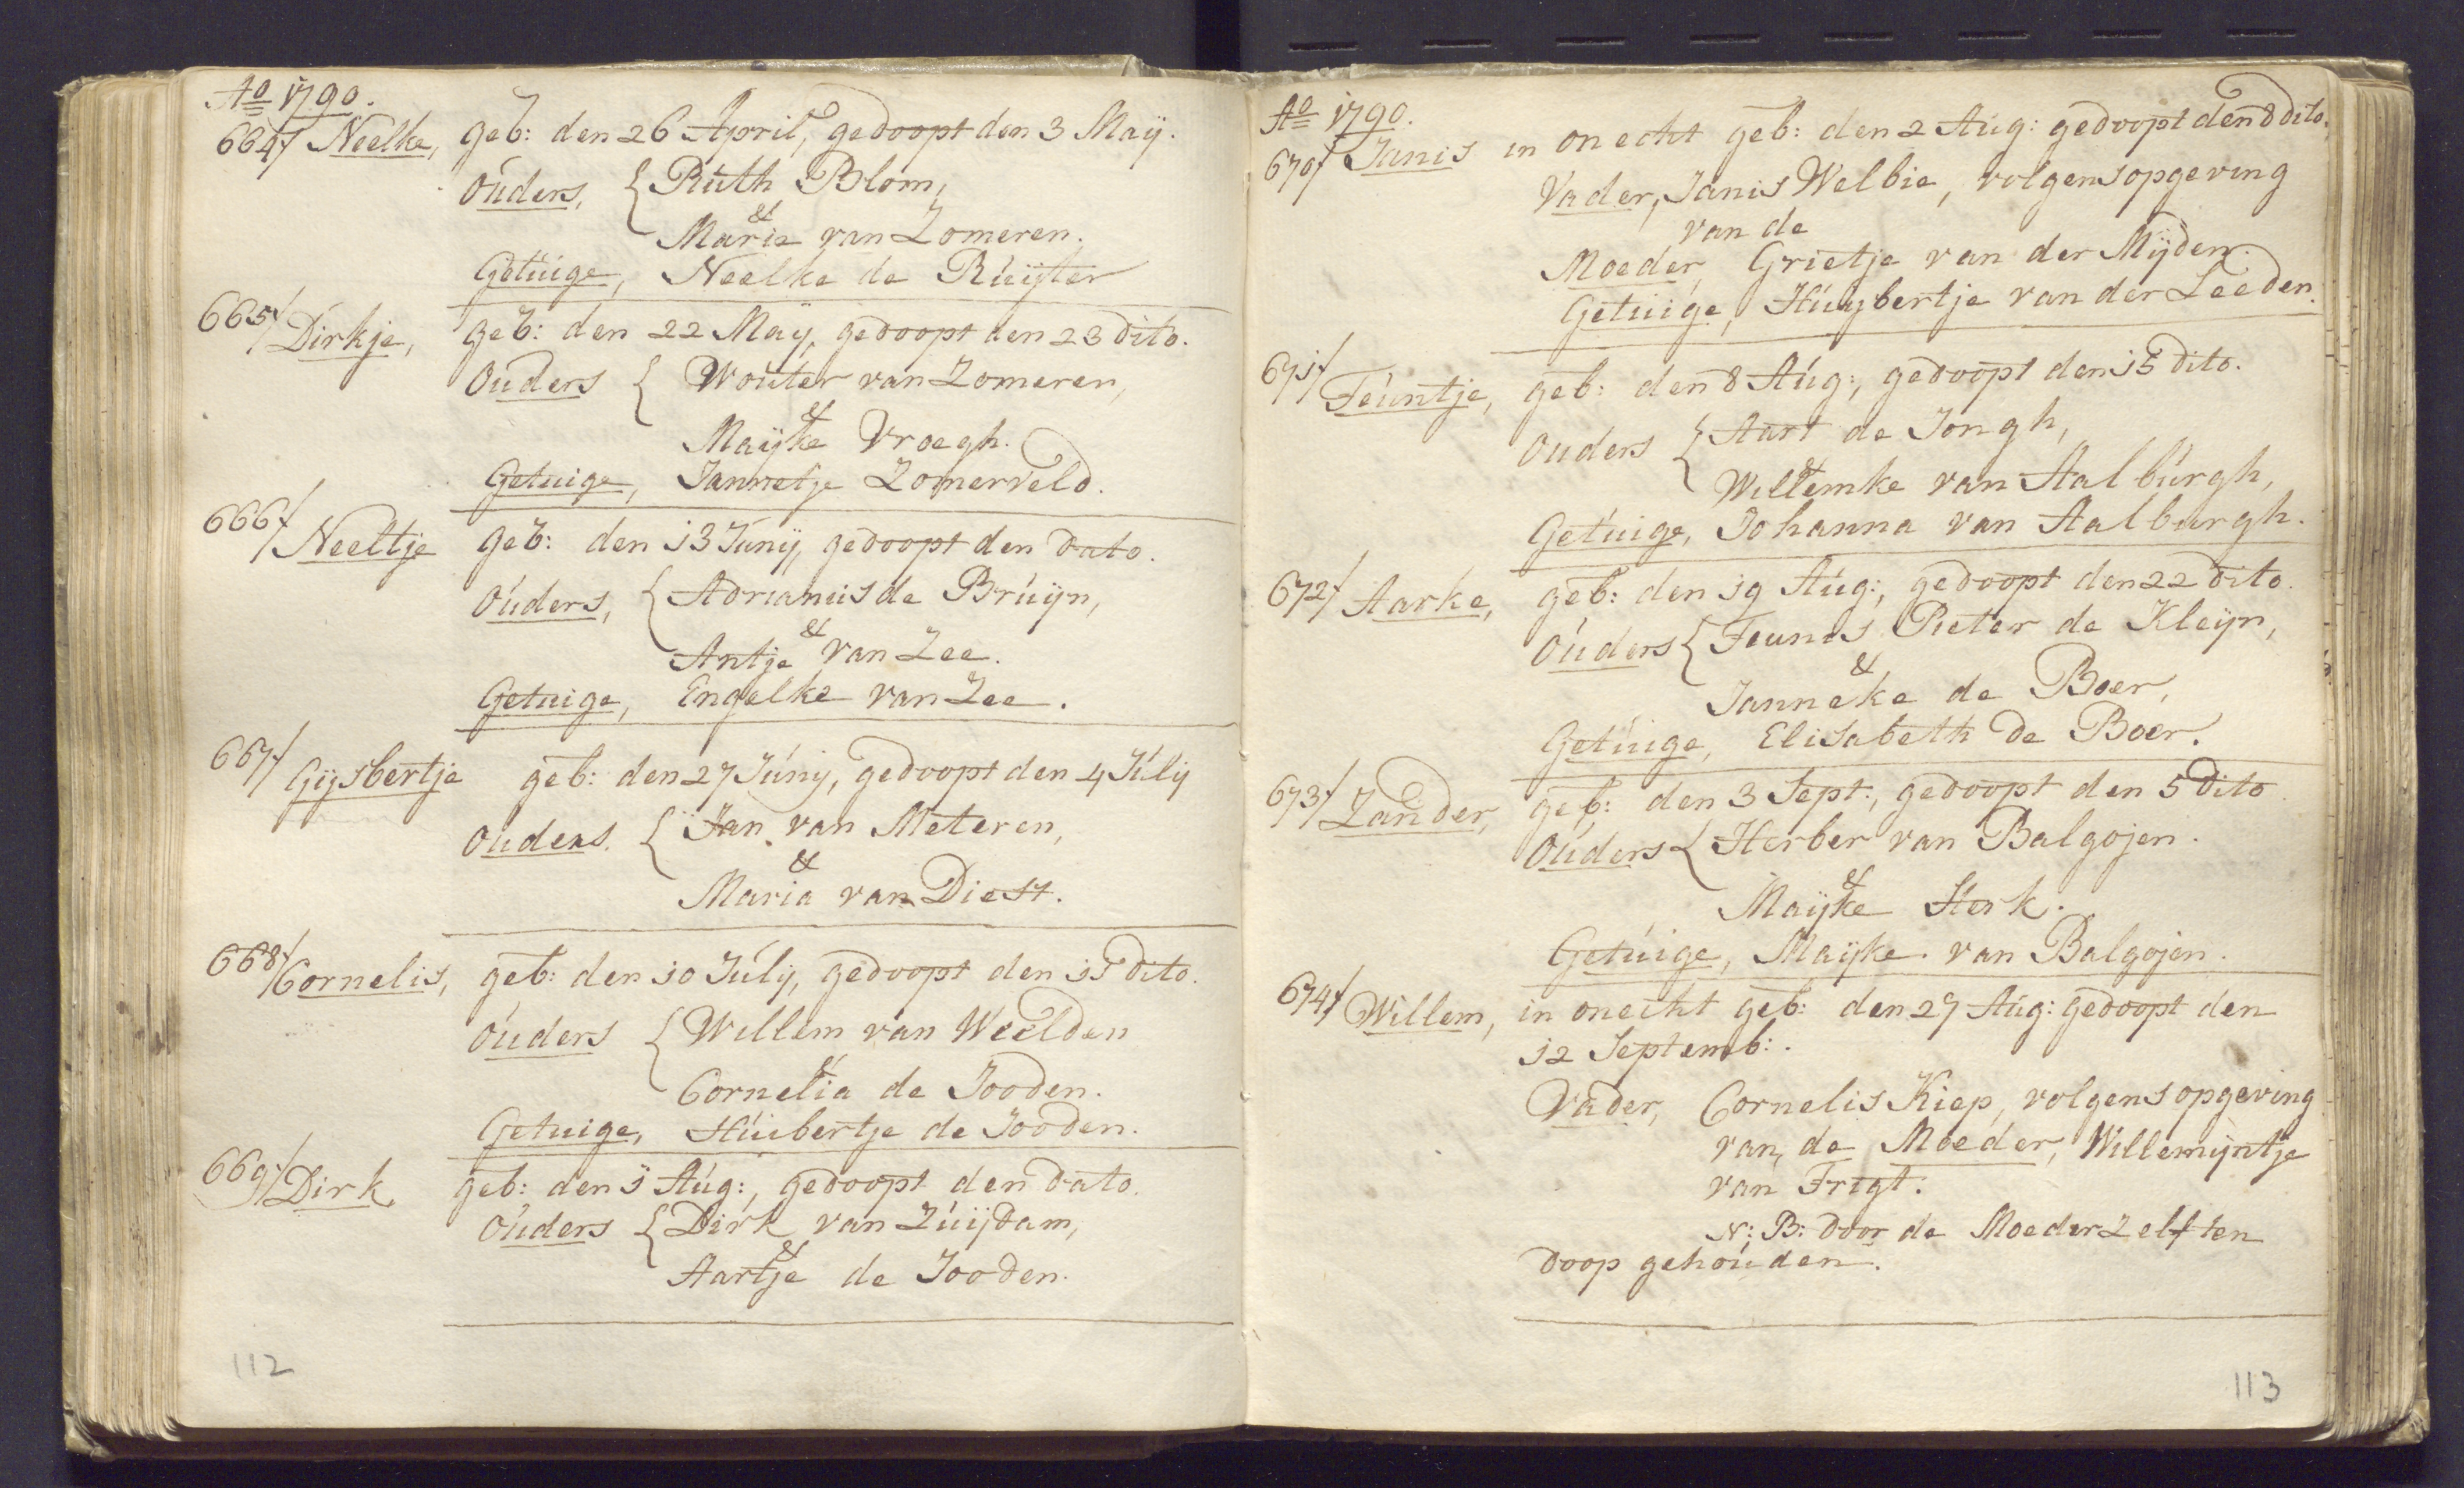 Ao 1790.
664/ Neelke, geb: den 26 April, gedoopt den 3 Maÿ.
Ouders, { Ruth Blom,
&
Maria van Zomeren.
Getuige, Neelke de Ruijter
665/ Dirkje, geb: den 22 Maÿ, gedoopt den 23 dito.
Ouders { Wouter van Zomeren,
&
Maÿke Vroegh.
Getuige, Jannetje Zomerveld.
666/ Neeltje geb: den 13 Junÿ, gedoopt den dato.
Ouders, { Adrianus de Bruijn,
&
Antje van Zee.
Getuige, Engelke van Zee.
667/ Gijsbertje geb: den 27 Junij, gedoopt den 4 Julij
Ouders. { Jan van Meteren,
&
Maria van Diest.
668/ Cornelis, geb: den 10 Julÿ, gedoopt den 11 dito.
Ouders { Willem van Weelden
&
Cornelia de Jooden.
Getuige, Huibertje de Jooden.
669/ Dirk. geb: den 1 Aug:, gedoopt den dato.
Ouders { Dirk van Zuijdam,
&
Aartje de Jooden.
112
Ao 1790.
670/ Janis in onecht geb: den 2 Aug: gedoopt den 8 dito.
Vader, Janis Welbie, volgens opgeving
van de
Moeder, Grietje van der Mijden.
Getuige, Huybertje van der Leeden.
671/ Teuntje, geb: den 8 Aug:, gedoopt den 15 dito.
Ouders { Aart de Jongh,
&
Willemke van Aalburgh,
Getuige, Johanna van Aalburgh.
672/ Aarke, geb: den 19 Aug:, gedoopt den 22 dito.
Ouders { Teunis Pieter de Kleijn,
&
Janneke de Boer,
Getuige, Elisabeth de Boer.
673/ Zander, geb: den 3 Sept:, gedoopt den 5 dito
Ouders { Herber van Balgojen.
&
Maÿke Sterk.
Getuige, Maÿke van Balgojen.
674/ Willem, in onecht geb: den 27 Aug: gedoopt den
12 Septemb:.
Vader, Cornelis Kiep, volgens opgeving
van, de Moeder, Willemijntje
van Frigt.
N: B: door de Moeder Zelf ten
doop gehouden.
113